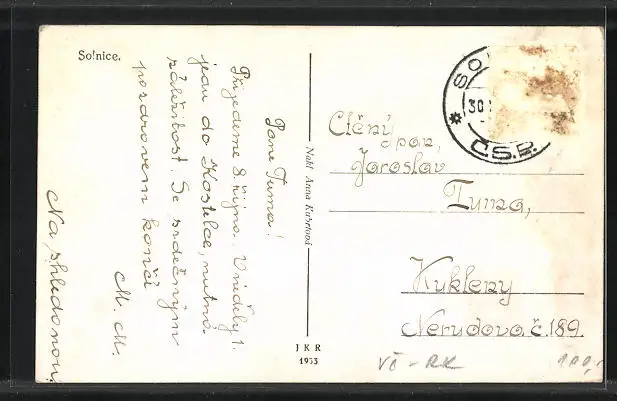 Solnice.
Pane Tuma!
Přijedeme 8. října. V neděly 1.
jsou do Kostelce, nutná
záležitost. Se srdečným
pozdravem končí
M. M.
Na shledanou!
Nakl. Anna
JKR
1933
SO
30
ČS.R.
Ctěný
pan,
Jaroslav
Tuma,
Kukleny
Nerudova č. 189.
VČ - RK
100,-